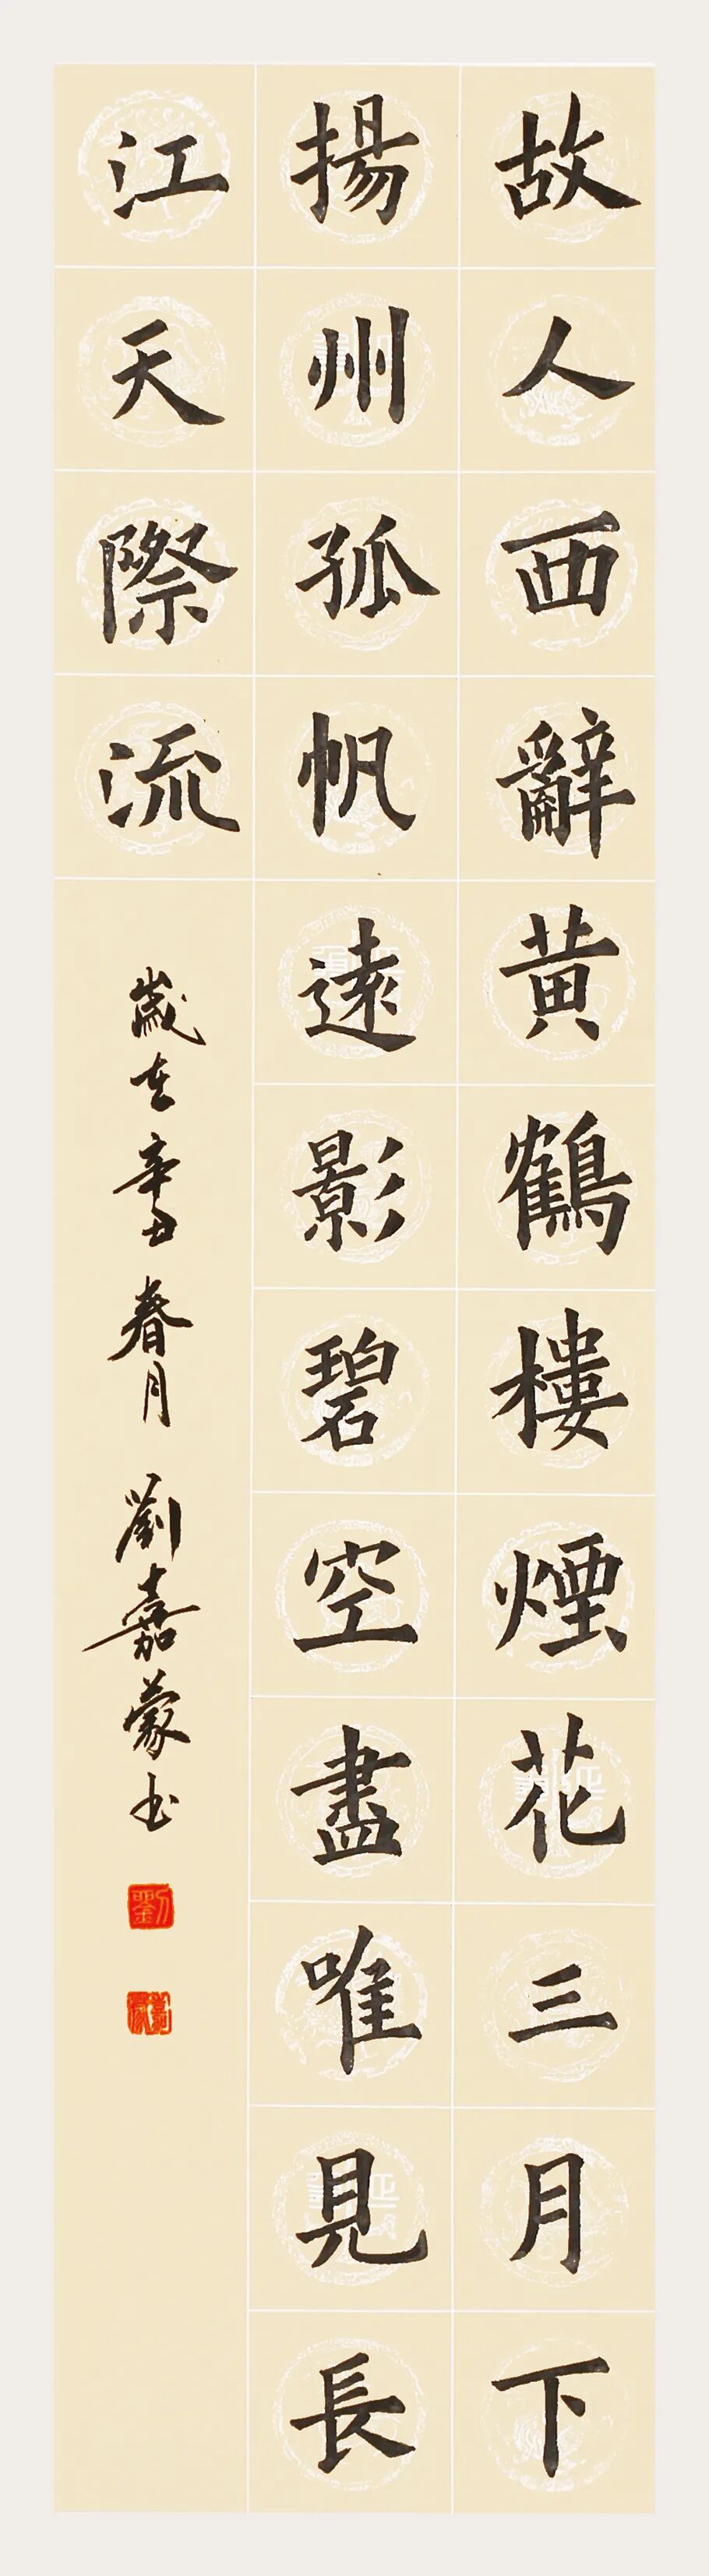 故人西辭黃鶴樓煙花三月下
揚州孤帆遠影碧空盡唯見長
江天際流
歲在辛丑春月劉嘉蒙書
劉
嘉蒙